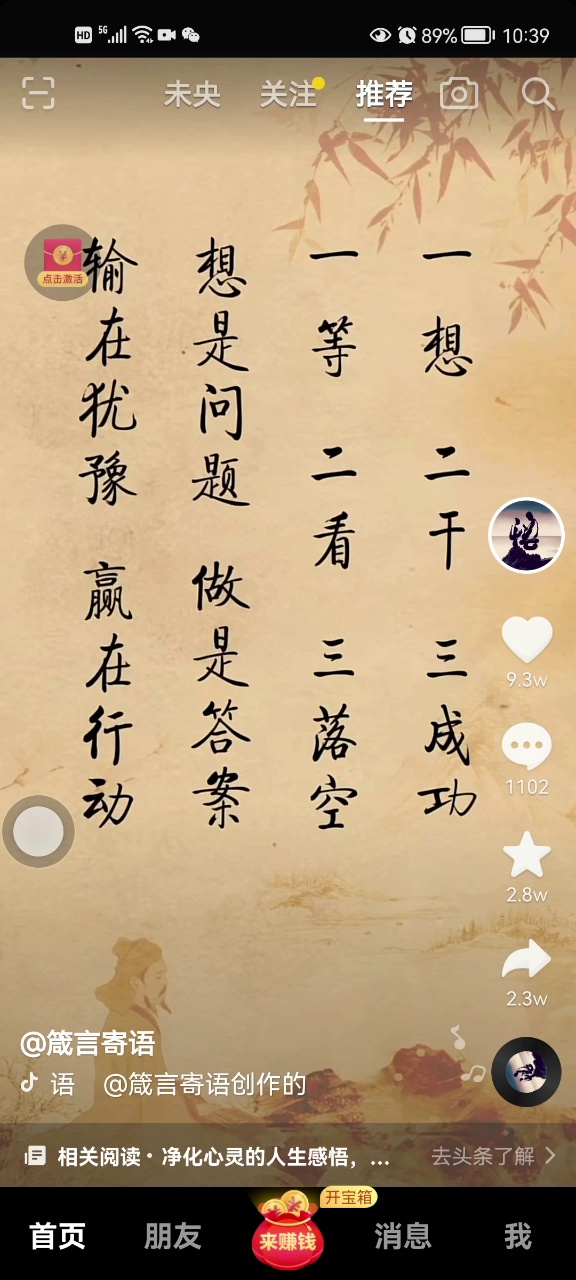 HD 5G 89% 10:39
未央 关注 推荐
点击激活
一想 二干 三成功
一等 二看 三落空
想是问题 做是答案
输在犹豫 赢在行动
9.3w
1102
2.8w
2.3w
@箴言寄语
语 @箴言寄语创作的
相关阅读·净化心灵的人生感悟，... 去头条了解
开宝箱
首页 朋友 来赚钱 消息 我